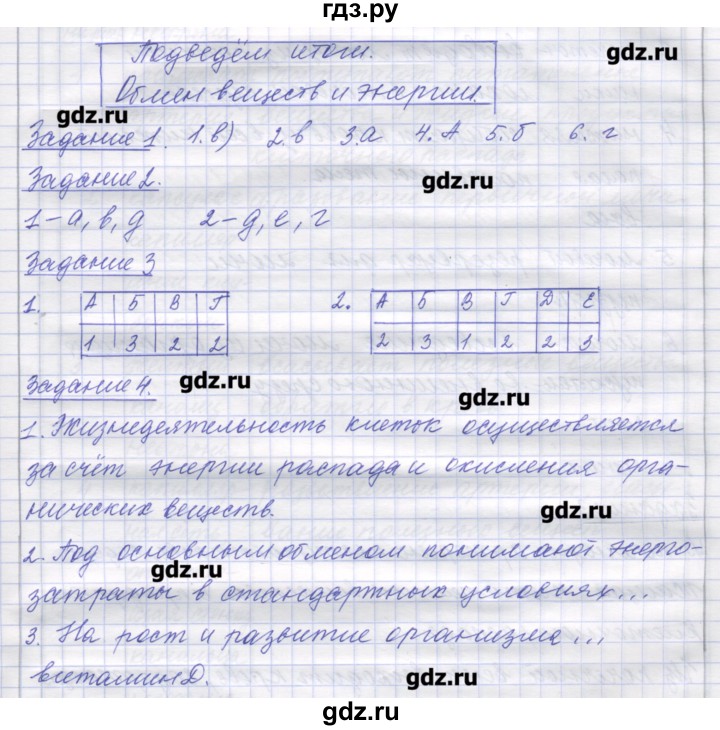 гдз.ру
Подведём итоги.
gdz.ru
Обмен веществ и энергии.
gdz.ru
Задание 1. 1.в) 2.в 3.а 4.А 5.б 6.г
Задание 2.
gdz.ru
1-а, в, д 2-д, е, г
Задание 3
1. А Б В Г 2. А Б В Г Д Е
1 3 2 2 2 3 1 2 2 3
Задание 4.
gdz.ru
gdz.ru
1. Жизнедеятельность клеток осуществляется
за счёт энергии распада и окисления орга-
нических веществ.
gdz.ru
2. Под основным обменом понимают энерго-
gdz.ru
затраты в стандартных условиях...
3. На рост и развитие организма...
витамин D.
gdz.ru
gdz.ru